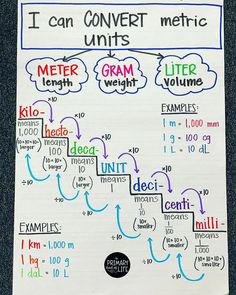 I can CONVERT metric
units
METER
length
GRAM
weight
LITER
volume
×10
kilo-
means
1,000
(10×10×10
larger)
÷10
×10
hecto-
means
100
(10×10
larger)
÷10
×10
deca-
means
10
(10×
larger)
÷10
×10
UNIT
means
1
÷10
×10
deci-
means
1
10
(10×
smaller)
÷10
×10
centi-
means
1
100
(10×10
smaller)
÷10
milli-
means
1
1,000
(10×10×10
smaller)
EXAMPLES:
1 m = 1,000 mm
1 g = 100 cg
1 L = 10 dL
EXAMPLES:
1 km = 1,000 m
1 hg = 100 g
1 daL = 10 L
THE
PRIMARY
LIFE